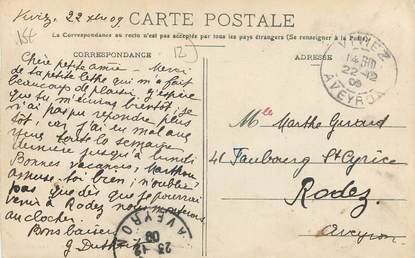 Viviez 22 xbre 09
CARTE POSTALE
La Correspondance au recto n'est pas acceptée par tous les pays étrangers (Se renseigner à la Poste)
CORRESPONDANCE
ADRESSE
Chère petite amie Merci
de ta petite lettre qui m'a fait
beaucoup de plaisir, j'espère
que tu m'écriras bientôt, je
n'ai pas pu répondre plus
tôt, car j'ai eu mal aux
yeux toute la semaine
dernière jusqu'à lundi
Bonnes vacances, Marthou
amuse-toi bien, n'oublie
pas que dès que je pourrai
venir à Rodez nous monterons
au clocher.
Bons baisers
G
VIVIEZ
22-12
09
AVEYRON
Mlle Marthe Guiraud
41 Faubourg St Cyrice
Rodez
Aveyron
AVEYRON
23-12
09